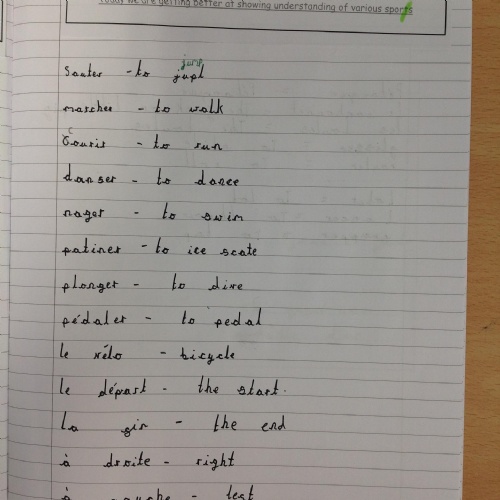 Today we are getting better at showing understanding of various sports
jump
sauter - to jupl
marcher - to walk
c
courir - to run
danser - to dance
nager - to swim
patiner - to ice scate
plonger - to dive
pédaler - to pedal
le vélo - bicycle
le départ - the start.
La fin - the end
à droite - right
à gauche - left